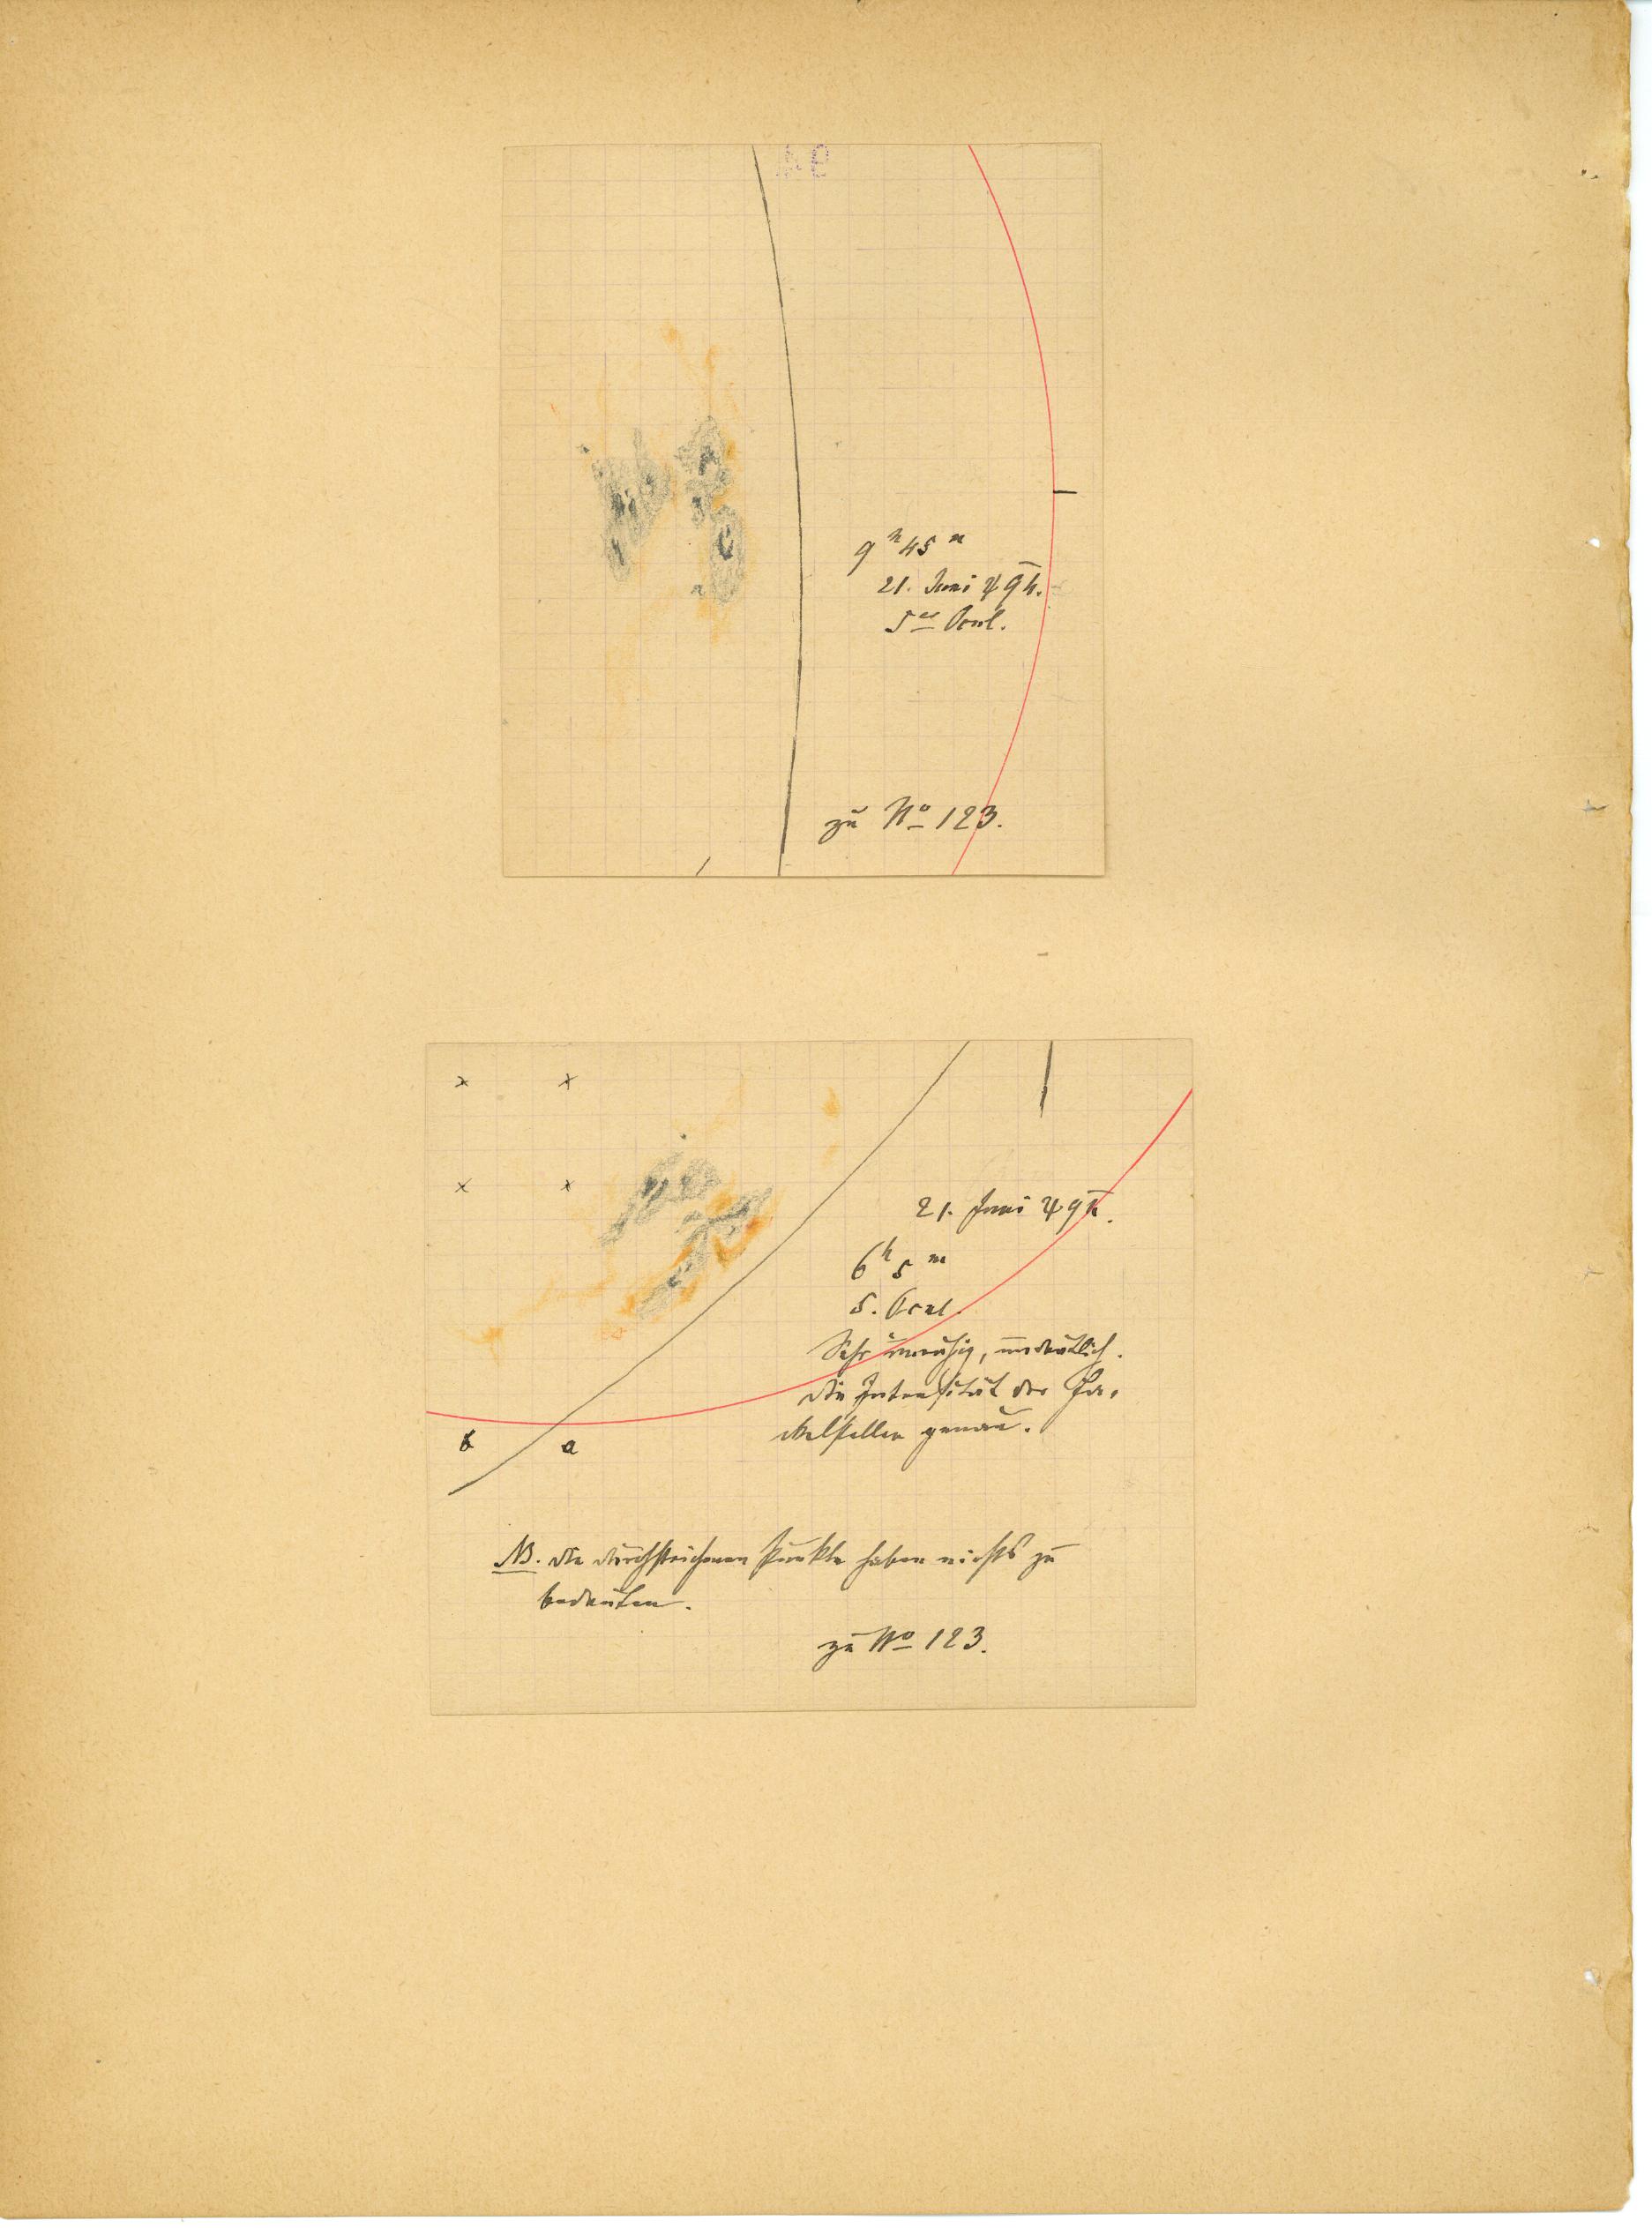 9ʰ 45ᵐ
21. Juni ♃ 94.
5ᵉˢ Ocul.
zu Nº 123.
21. Juni ♃ 94.
6ʰ 5ᵐ
5. Ocul.
Sehr unruhig, undeutlich.
Die Intensität der Fa-
ckelstellen genau.
b a
NB. Die durchstrichenen Punkte haben nichts zu
bedeuten.
zu Nº 123.